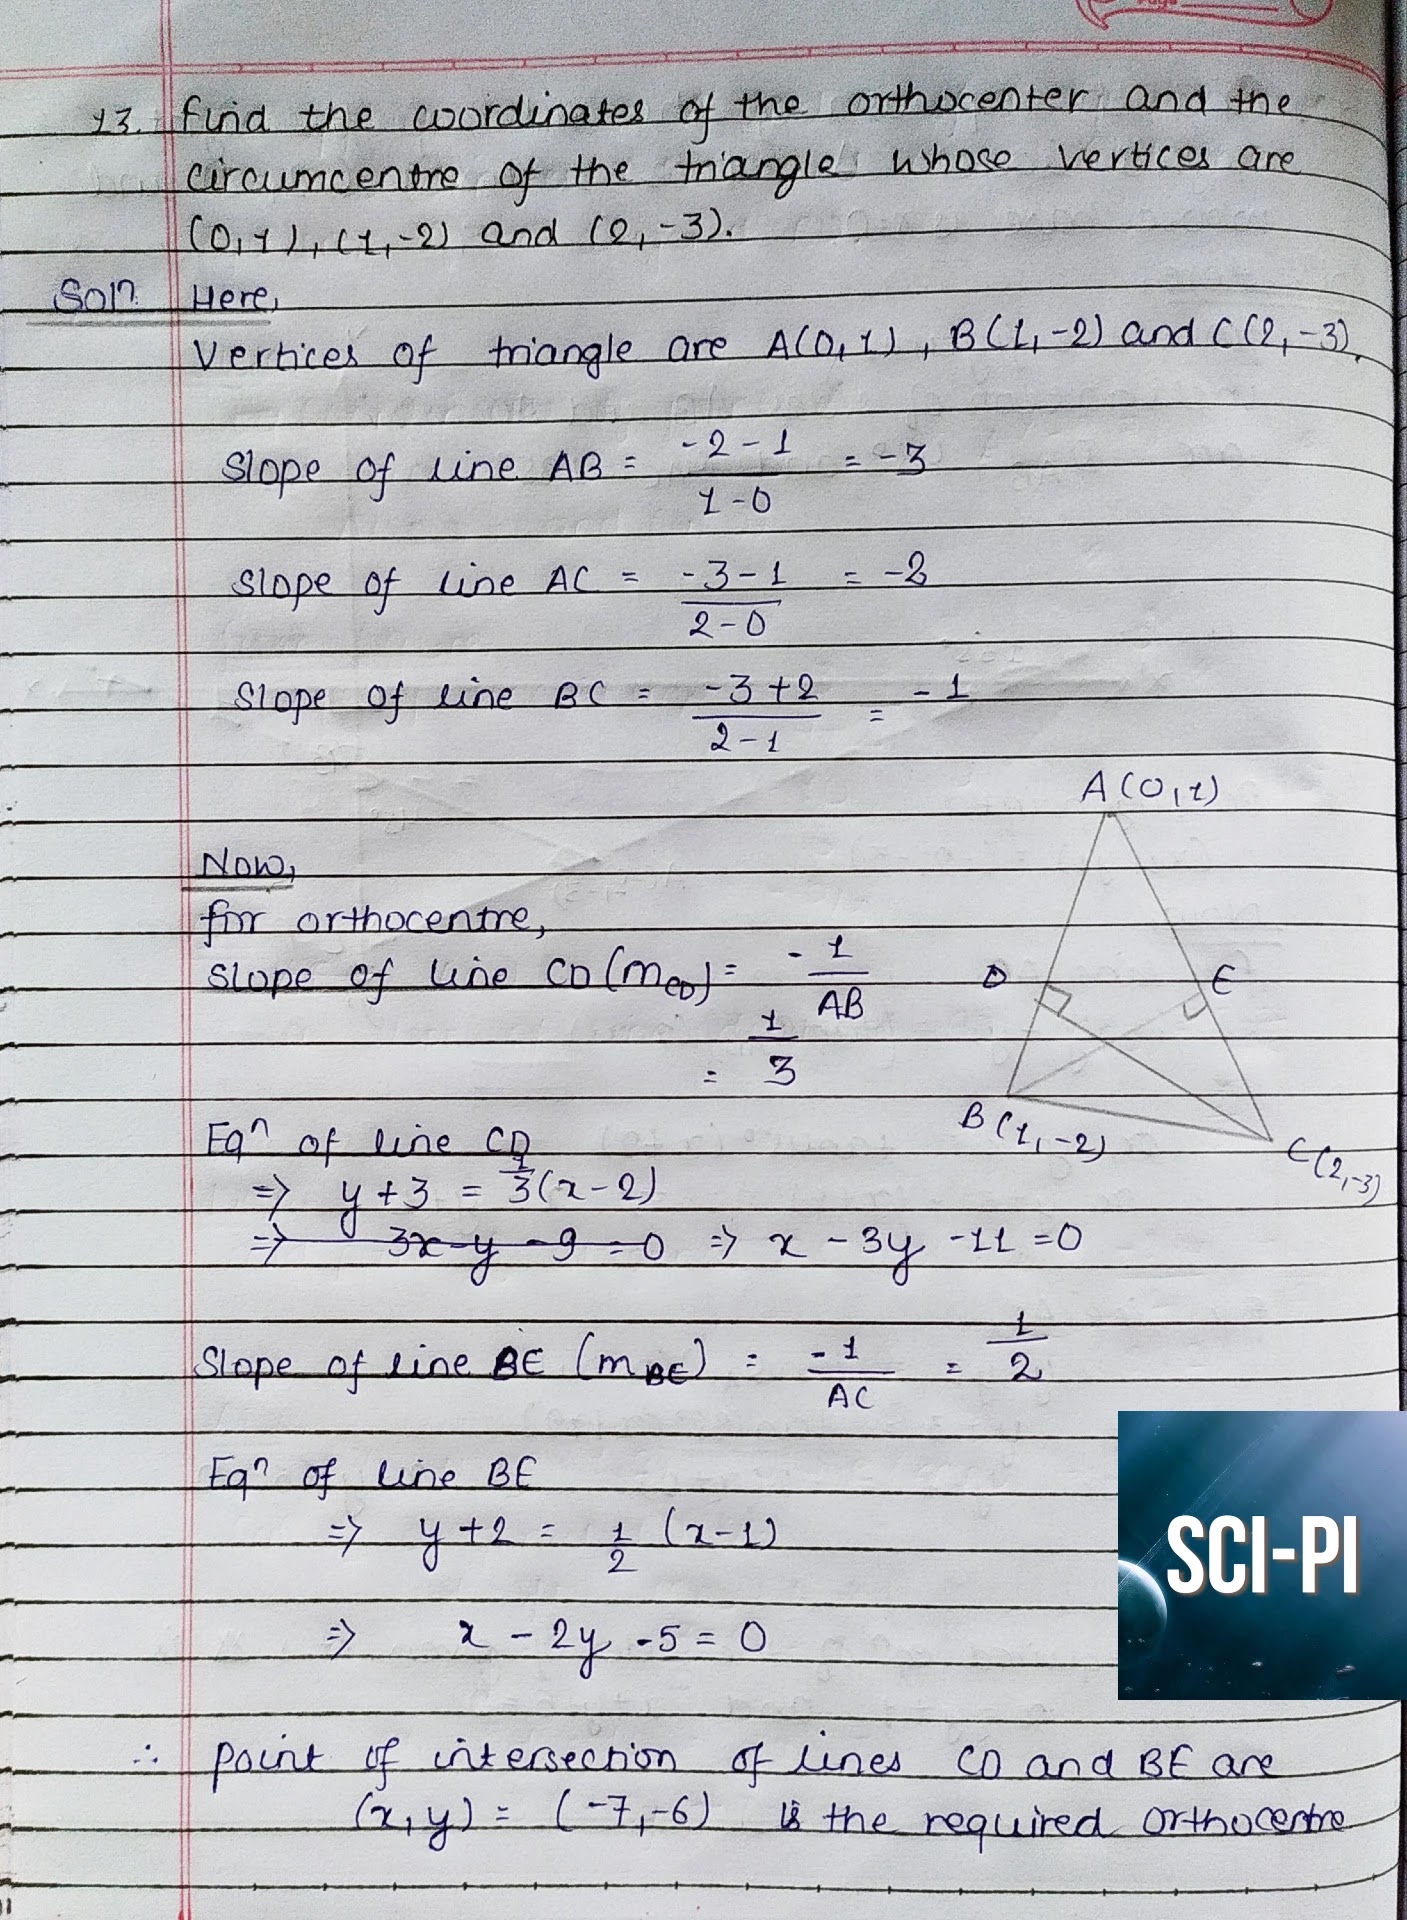 13. find the coordinates of the orthocenter and the
circumcentre of the triangle whose vertices are
(0,1), (1,-2) and (2,-3).
Solⁿ. Here,
Vertices of triangle are A(0,1), B(1,-2) and C(2,-3).
Slope of line AB = -2-1/1-0 = -3
Slope of line AC = -3-1/2-0 = -2
Slope of line BC = -3+2/2-1 = -1
A(0,1)
Now,
for orthocentre,
Slope of line CD (mCD) = -1/AB
D
E
= 1/3
B(1,-2)
C(2,-3)
Eqⁿ of line CD
=> y+3 = 1/3(x-2)
=> 3x-y-9=0 => x-3y-11=0
Slope of line BE (mBE) = -1/AC = 1/2
Eqⁿ of line BE
=> y+2 = 1/2 (x-1)
=> x-2y-5=0
SCI-PI
∴ point of intersection of lines CD and BE are
(x,y) = (-7,-6) is the required orthocentre